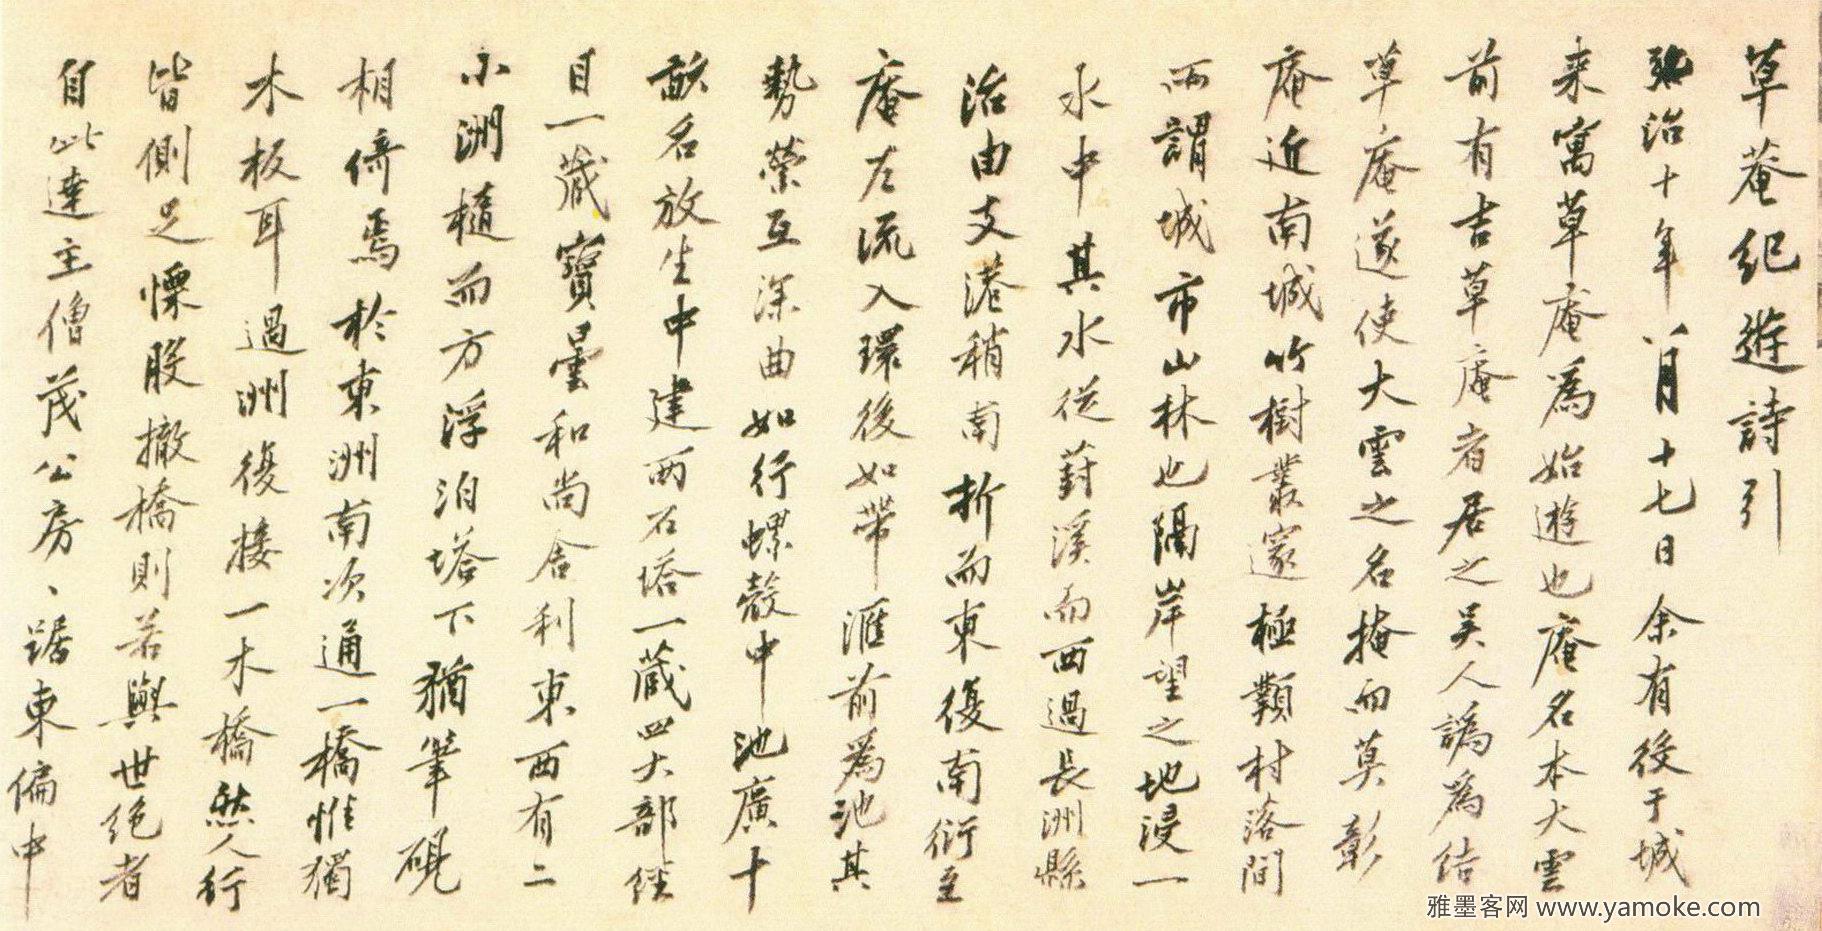 草菴紀遊詩引
弘治十年八月十七日余有役于城
来寓草庵為始遊也庵名本大雲
前有吉草庵者居之吴人譌為结
草庵遂使大雲之名掩而莫彰
庵近南城竹樹叢邃極類村落間
所謂城市山林也隔岸望之地浸一
水中其水從葑溪而西過長洲縣
治由支港稍南折而東復南衍至
庵左流入環後如带匯前為池其
勢縈互深曲如行螺殼中池廣十
畝名放生中建两石塔一藏四大部经
目一藏寶曇和尚舍利東西有二
小洲椭而方浮泊塔下猶筆硯
相倚焉於東洲南次通一橋惟獨
木板耳過洲復接一木橋然人行
皆側足慄股撤橋則若與世绝者
自此達主僧茂公房、踞東偏中
雅墨客网 www.yamoke.com